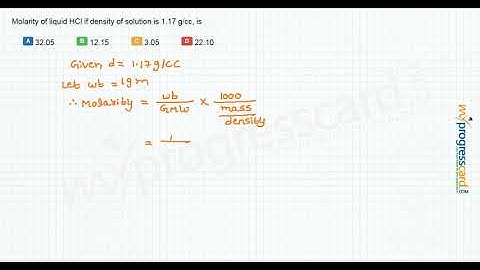 Molarity of liquid HCl if density of solution is 1.17 g/cc, is
A 32.05 B 12.15 C 3.05 D 22.10
Given d = 1.17 g/cc
Let wt = 1gm
∴ Molarity = wt/GMW × 1000/mass/density
= 1
wxprogresscard.com
wxprogresscard.com